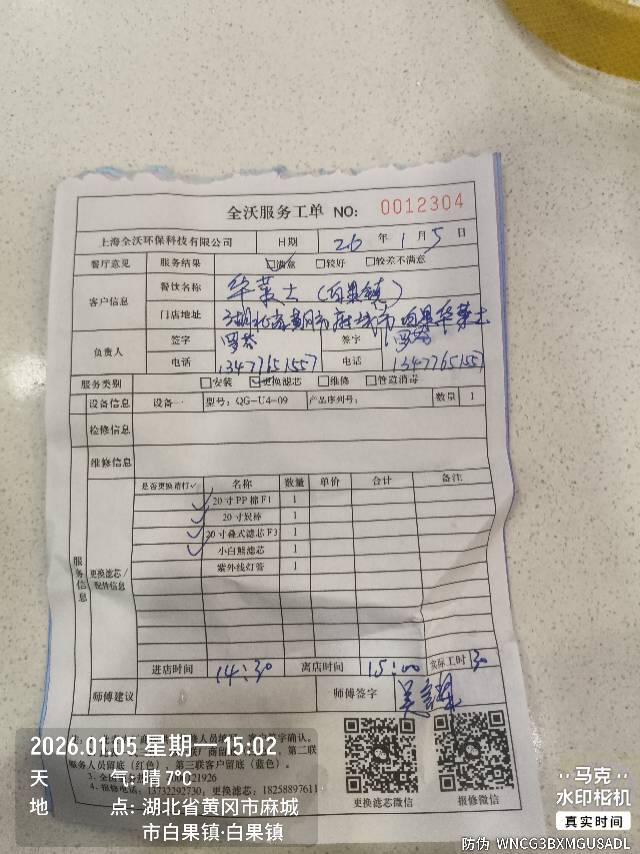 全沃服务工单 NO: 0012304
上海全沃环保科技有限公司 日期 26 年 1 月 5 日
餐厅意见 服务结果 ☑满意 □较好 □较差不满意
客户信息 餐饮名称 华莱士（白果镇）
门店地址 湖北省黄冈市麻城市白果华莱士
负责人 签字 签字
电话 13477651557 电话 13477651557
服务类别 □安装 ☑更换滤芯 □维修 □管道消毒
设备信息 设备一 型号：QG-U4-09 产品序列号： 数量 1
检修信息
维修信息
服务信息 更换滤芯/配件信息
是否更换请打✓ 名称 数量 单价 合计 备注
✓ 20寸PP棉F1 1
✓ 20寸炭棒 1
✓ 20寸叠式滤芯F3 1
✓ 小白熊滤芯 1
紫外线灯管 1
进店时间 14:30 离店时间 15:00 实际工时 30
师傅建议 师傅签字
人员留底（红色），第三联客户留底（蓝色）。
4. 报修电话：13732292730；更换滤芯：18258897611
更换滤芯微信 报修微信
2026.01.05 星期一 15:02
天 气: 晴 7℃
地 点: 湖北省黄冈市麻城
市白果镇·白果镇
马克
水印相机
真实时间
防伪 WNCG3BXMGUSADL